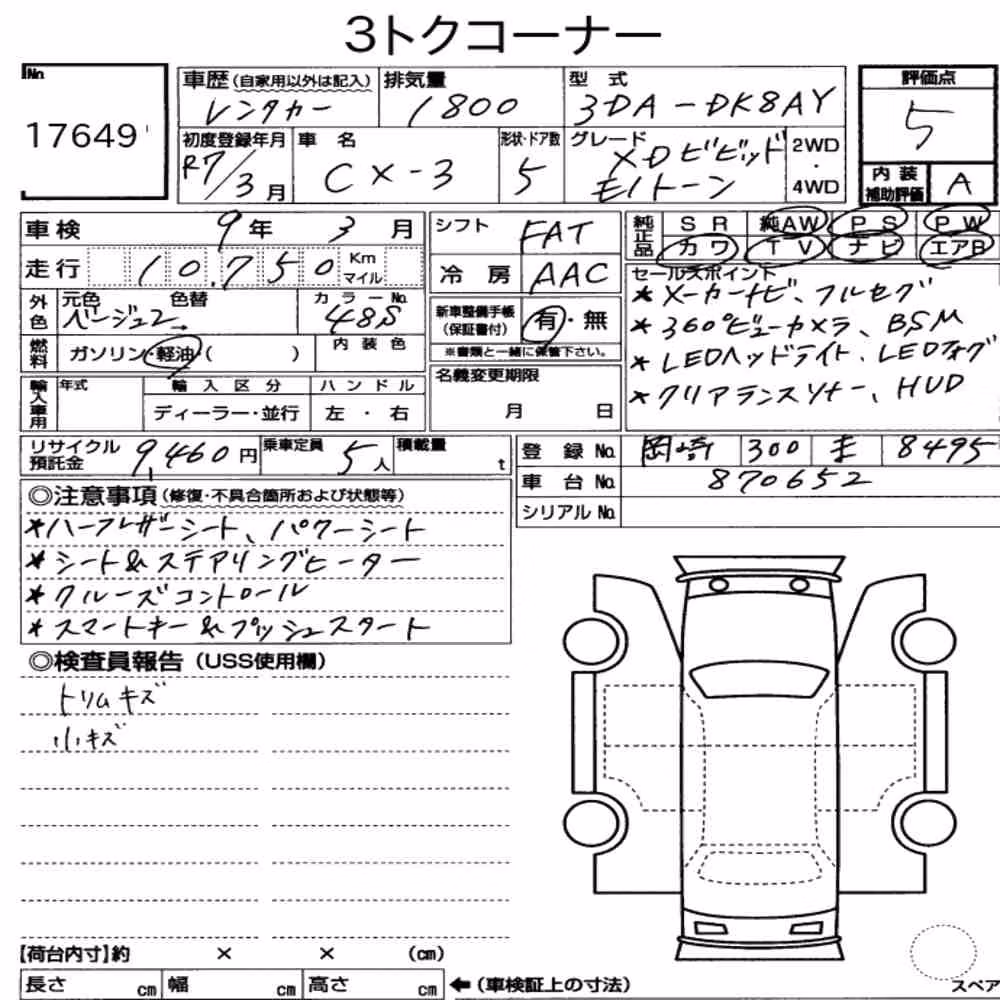 3トクコーナー
No.
17649
車歴 (自家用以外は記入) 排気量 型式 評価点
レンタカー 1800 3DA-DK8AY 5
初度登録年月 車名 形状・ドア数 グレード 2WD・4WD 内装補助評価
R7/3月 CX-3 5 XDビビッドモノトーン A
車検 9年 3月 シフト FAT 純正品 SR 純AW PS PW
カワ TV ナビ エアB
走行 10,750 Km マイル 冷房 AAC
セールスポイント
*メーカーナビ、フルセグ
*360°ビューカメラ、BSM
*LEDヘッドライト、LEDフォグ
*クリアランスソナー、HUD
外色 元色 色替 カラーNo. 新車整備手帳(保証書付) 有・無
ベージュ2 48S
※書類と一緒に保管下さい。
燃料 ガソリン・軽油( ) 内装色
名義変更期限
月 日
輸入車用 年式 輸入区分 ハンドル
ディーラー・並行 左・右
リサイクル預託金 9,460円 乗車定員 5人 積載量 t
登録No. 岡崎 300 8495
車台No. 870652
シリアルNo.
◎注意事項 (修復・不具合箇所および状態等)
*ハーフレザーシート、パワーシート
*シート&ステアリングヒーター
*クルーズコントロール
*スマートキー&プッシュスタート
◎検査員報告 (USS使用欄)
トリムキズ
小キズ
【荷台内寸】約 × × (cm)
長さ cm 幅 cm 高さ cm ←(車検証上の寸法)
スペア